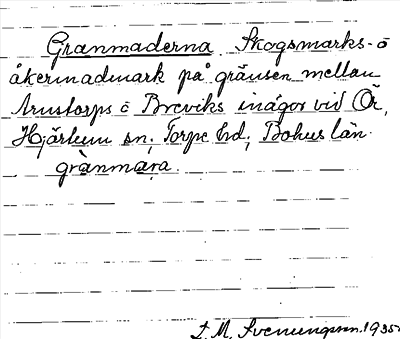 Granmaderna. Skogsmarks- o
åkermadmark på gränsen mellan
Arnstorps o Breviks inägor vid Ör,
Hjärtum sn, Torpe hd, Bohus län.
grànmara.
L. M. Svenungsson. 1935